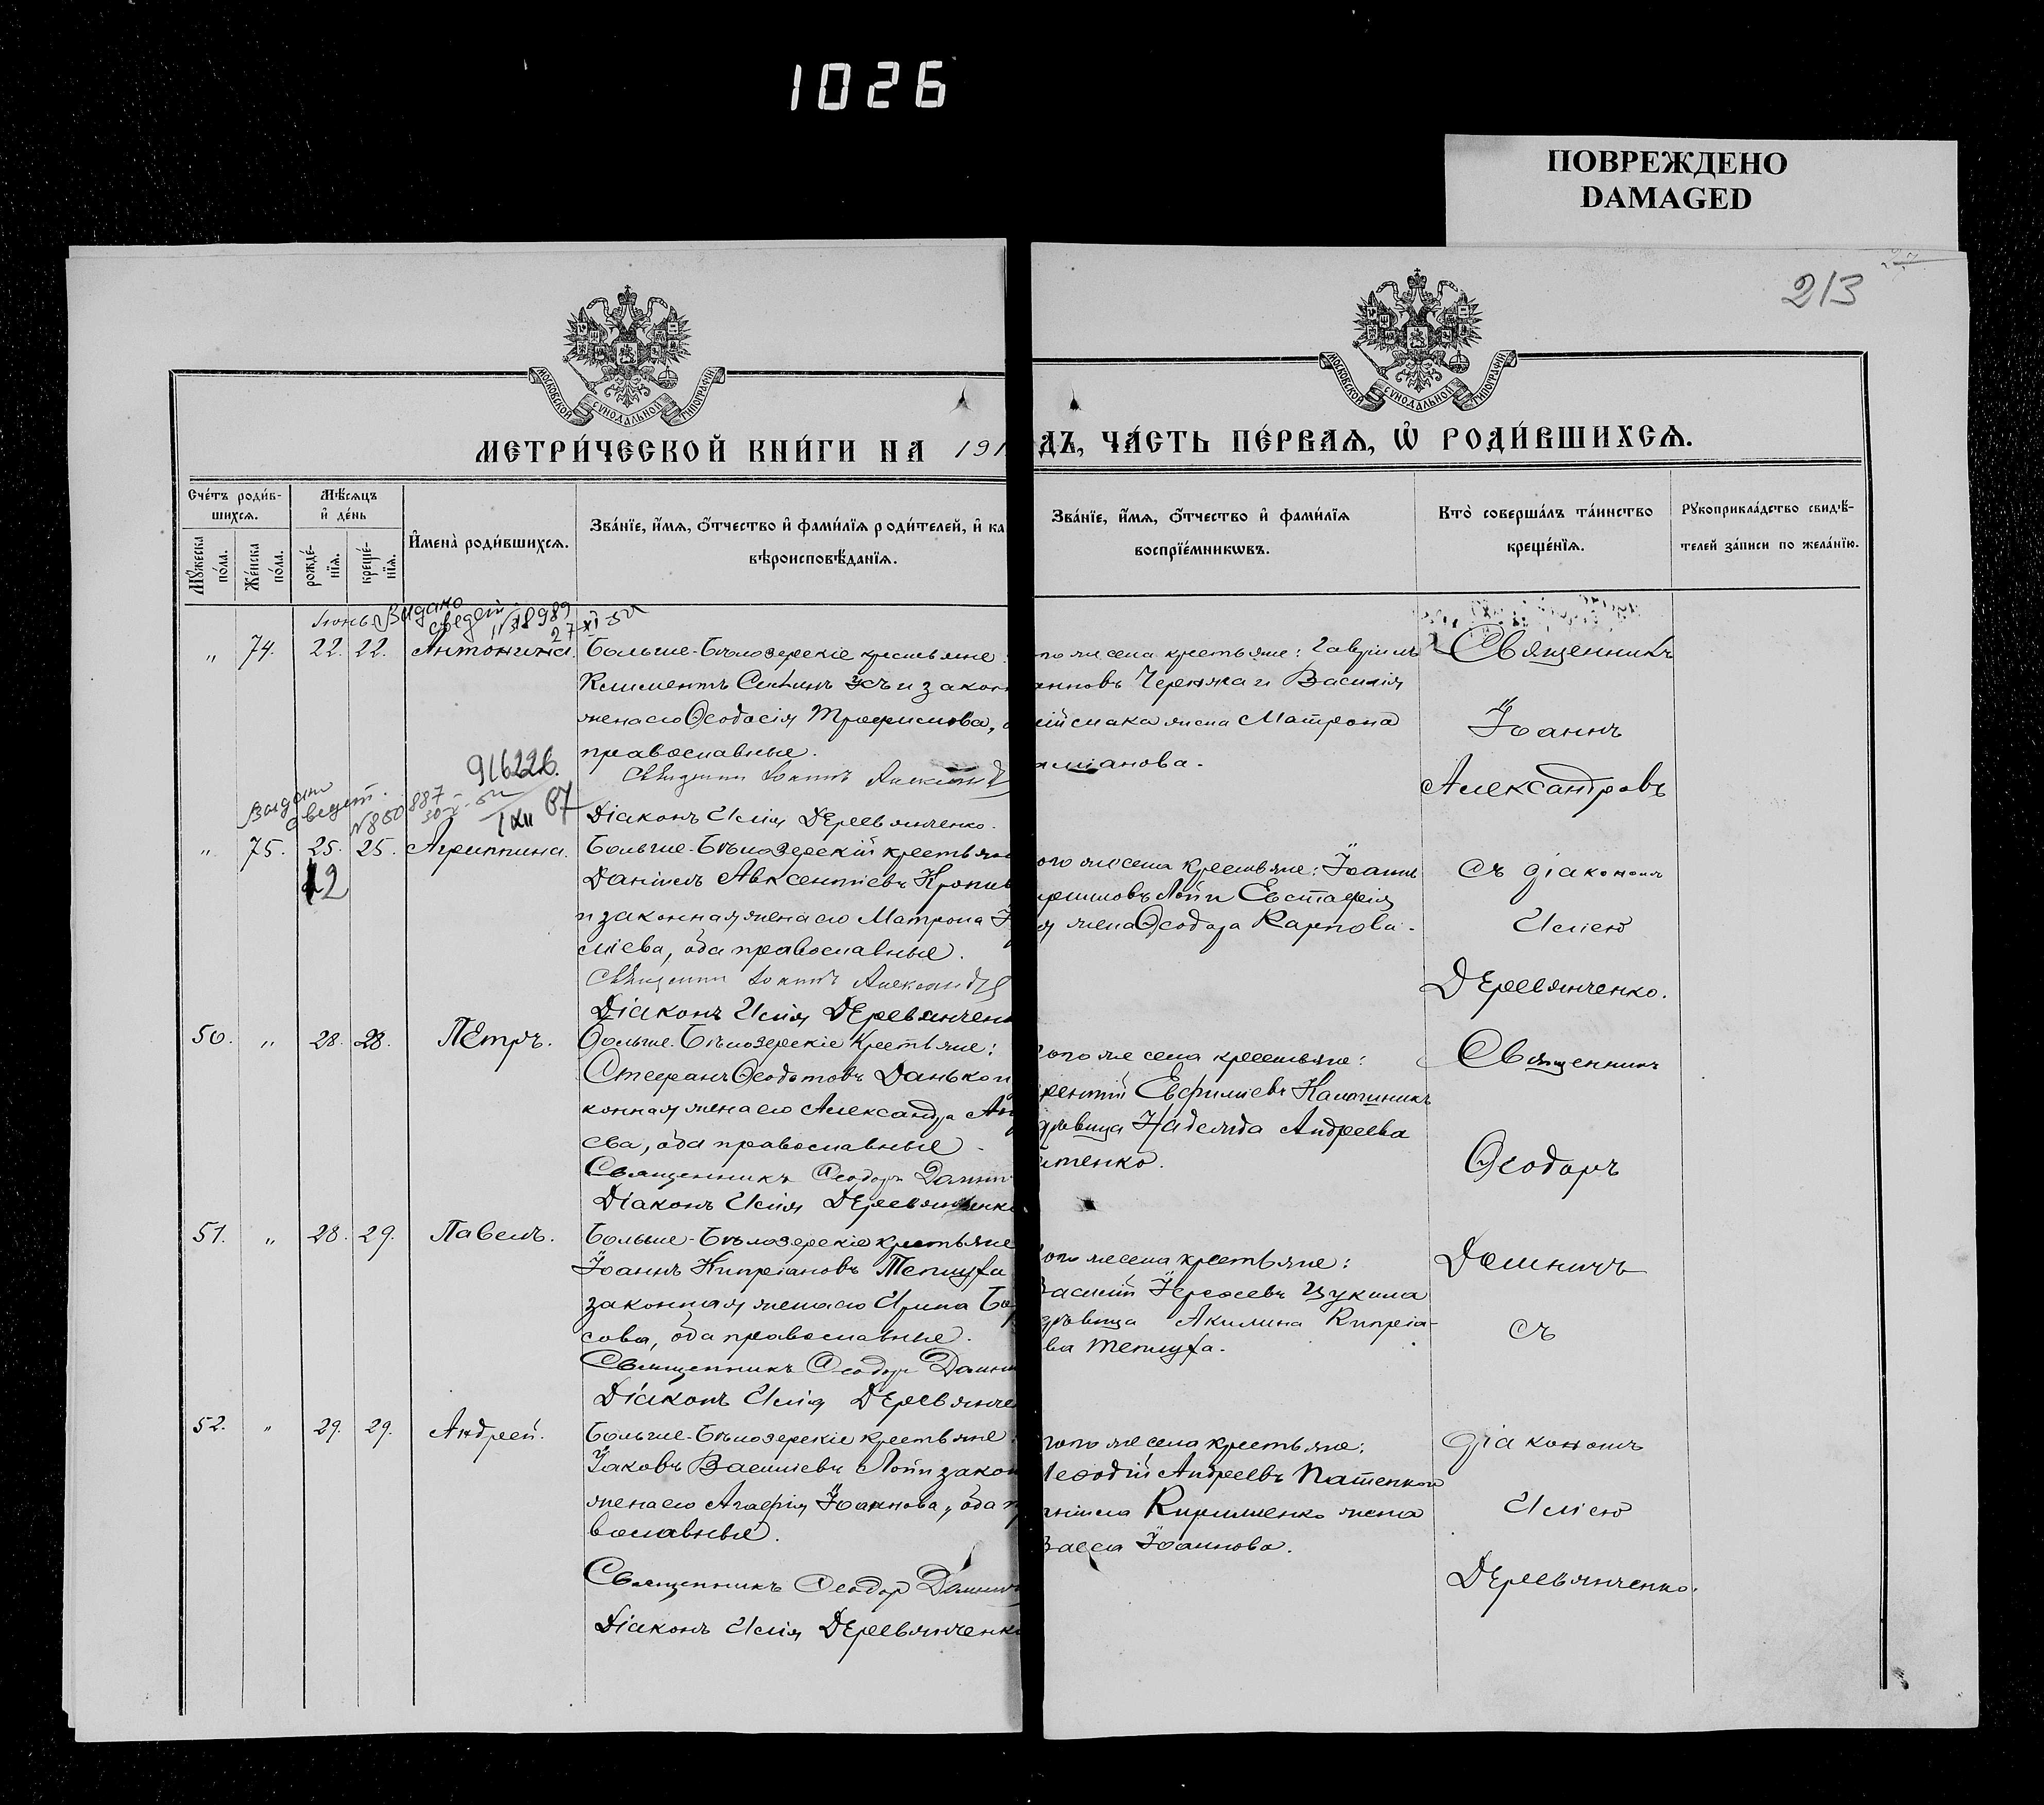 1026
ПОВРЕЖДЕНО
DAMAGED
213
МОСКОВСКОЙ СѴНОДАЛЬНОЙ ТИПОГРАФІИ
МОСКОВСКОЙ СѴНОДАЛЬНОЙ ТИПОГРАФІИ
МЕТРИ́ЧЕСКОЙ КНИ́ГИ НА 191
ДЪ, ЧА́СТЬ ПЕ́РВАѦ, Ѡ҆ РОДИ́ВШИХСѦ.
Сче́тъ роди́в-
шихсѧ.
Мѣ́сѧцъ
и҆ де́нь
Му́жеска по́ла.
Же́нска по́ла.
рожде́-нїѧ.
креще́-нїѧ.
И҆мена̀ роди́вшихсѧ.
Зва́нїе, и҆́мѧ, ѻ҆́тчество и҆ фами́лїѧ роди́телей, и҆ ка
вѣроисповѣ́данїѧ.
Зва́нїе, и҆́мѧ, ѻ҆́тчество и҆ фами́лїѧ
воспрїе́мникѡвъ.
Кто̀ соверша́лъ та́инство
креще́нїѧ.
Рꙋкоприкла́дство свидѣ́-
телей за́писи по жела́нїю.
Іюнь. Видано
свидет 18989
27 XI
„ 74. 22. 22. Антонина.
Больше-Бѣлозерскіе крестьяне:
Климентъ Усъ и закон
жена его Ѳеодосія Трофимова,
православные.
Священник Іоаннъ Александ
Діаконъ Илія Деревянченко.
го же села крестьяне: Гавріилъ
анновъ Черняка и Василія
жена Матрона
Священникъ
Іоаннъ
Александровъ
916226.
Выдано
свидет.
№ 860887
67
„ 75. 25. 25. Агриппина.
12
Больше-Бѣлозерскій крестьяне
Даніилъ Авксентіевъ Кропив
и законная жена его Матрона
ліева, оба православные.
Священник Іоаннъ Александ
Діаконъ Илія Деревянчен
ого же села крестьяне: Іоаннъ
Евстафія
я жена Ѳеодора Карпова.
съ діакономъ
Иліею
Деревянченко.
50. „ 28. 28. Петръ.
Больше-Бѣлозерскіе крестьяне:
Стефанъ Ѳеодотовъ Данько и
конная жена его Александра Ан
ева, оба православные.
Священникъ Ѳеодоръ Домни
Діаконъ Илія Деревянченко
ого же села крестьяне:
рентій Евфиміевъ Калашникъ
дѣвица Надежда Андреева
тенко.
Священникъ
Ѳеодоръ
51. „ 28. 29. Павелъ.
Больше-Бѣлозерскіе крестьяне
Іоаннъ Кипріановъ Теплуха
законная жена его Ирина Бо
сова, оба православные.
Священникъ Ѳеодоръ Домни
Діаконъ Илія Деревянче
ого же села крестьяне:
Василій Цукила
дѣвица Акилина Кипріа-
ва Теплуха.
Домничъ
съ
52. „ 29. 29. Андрей.
Больше-Бѣлозерскіе крестьяне:
Іаковъ Василіевъ Лой и закон
жена его Агафія Іоаннова, оба п
вославные.
Священникъ Ѳеодоръ Домнич
Діаконъ Илія Деревянченко
того же села крестьяне:
Меѳодій Андреевъ Патенко и
Даніила Кириленко жена
Васса Іоаннова.
діакономъ
Иліею
Деревянченко.